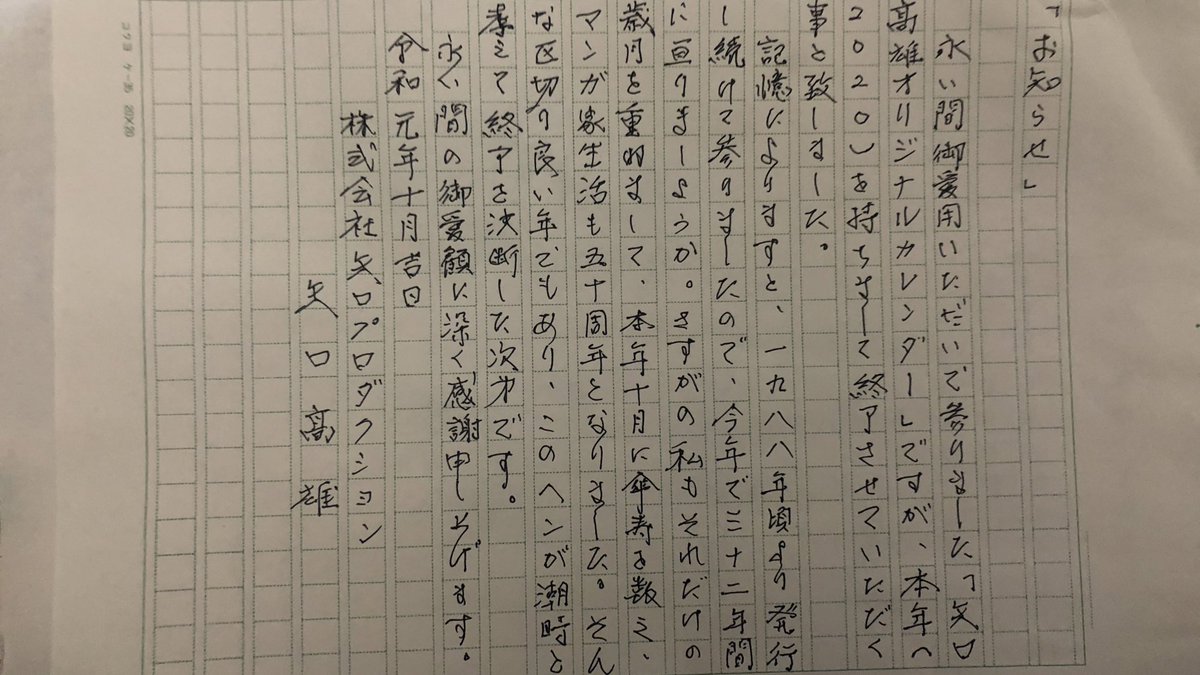 「お知らせ」
永い間御愛用いただいて参りました「矢口
高雄オリジナルカレンダー」ですが、本年(
2020)を持ちまして終了させていただく
事と致しました。
記憶によりますと、一九八八年頃より発行
し続けて参りましたので、今年で三十二年間
に亘りましょうか。さすがの私もそれだけの
歳月を重ねまして、本年十月に傘寿を数え、
マンガ家生活も五十周年となりました。そん
な区切り良い年でもあり、このヘンが潮時と
考えて終了を決断した次才です。
永い間の御愛顧に深く感謝申し上げます。
令和元年十月吉日
株式会社矢口プロダクション
矢口高雄
コクヨ ケー
20×20